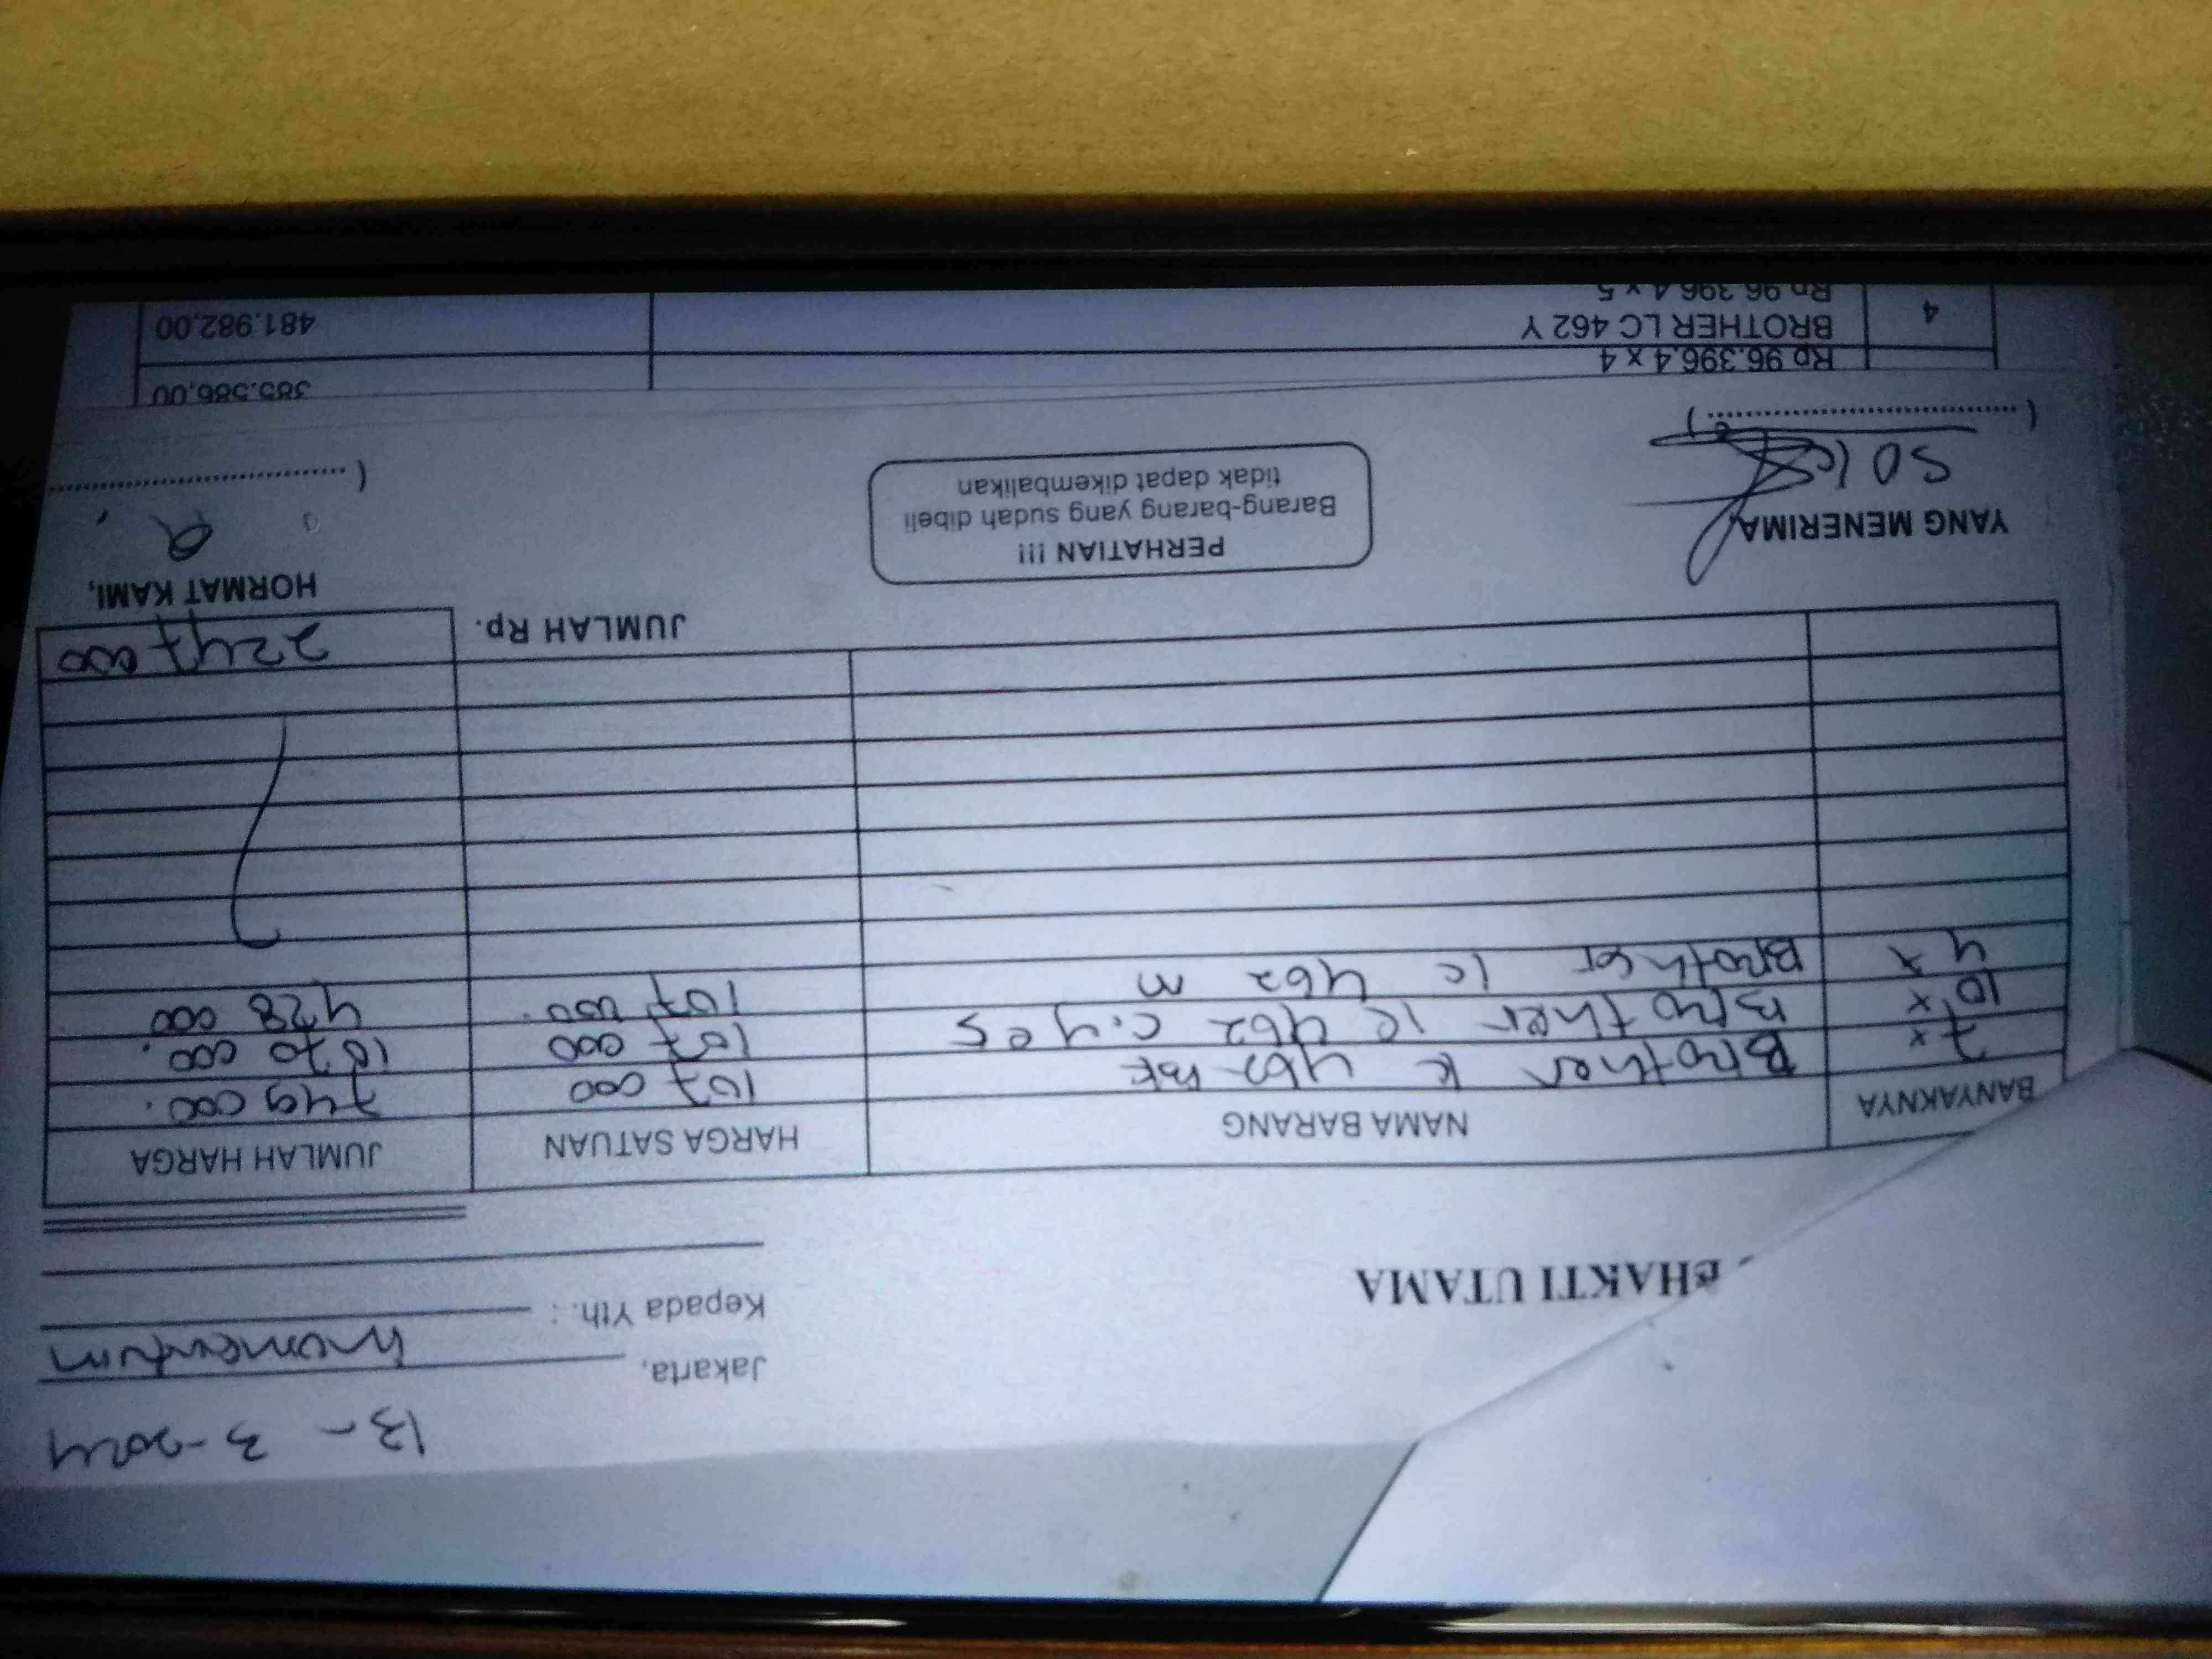 13 - 3 - 2024
Jakarta,
Momentum
Kepada Yth. :
BHAKTI UTAMA
BANYAKNYA NAMA BARANG HARGA SATUAN JUMLAH HARGA
7 x Brother lc 462 BK 107 000 749 000.
10 x Brother lc 462 c.y e5 107 000 1070 000.
4 x Brother lc 462 m 107 000. 428 000
JUMLAH Rp. 2247 000
YANG MENERIMA,
PERHATIAN !!!
Barang-barang yang sudah dibeli
tidak dapat dikembalikan
HORMAT KAMI,
Rp 96.396,4 x 4 385.586,00
4 BROTHER LC 462 Y 481.982,00
Rp 96.396,4 x 5